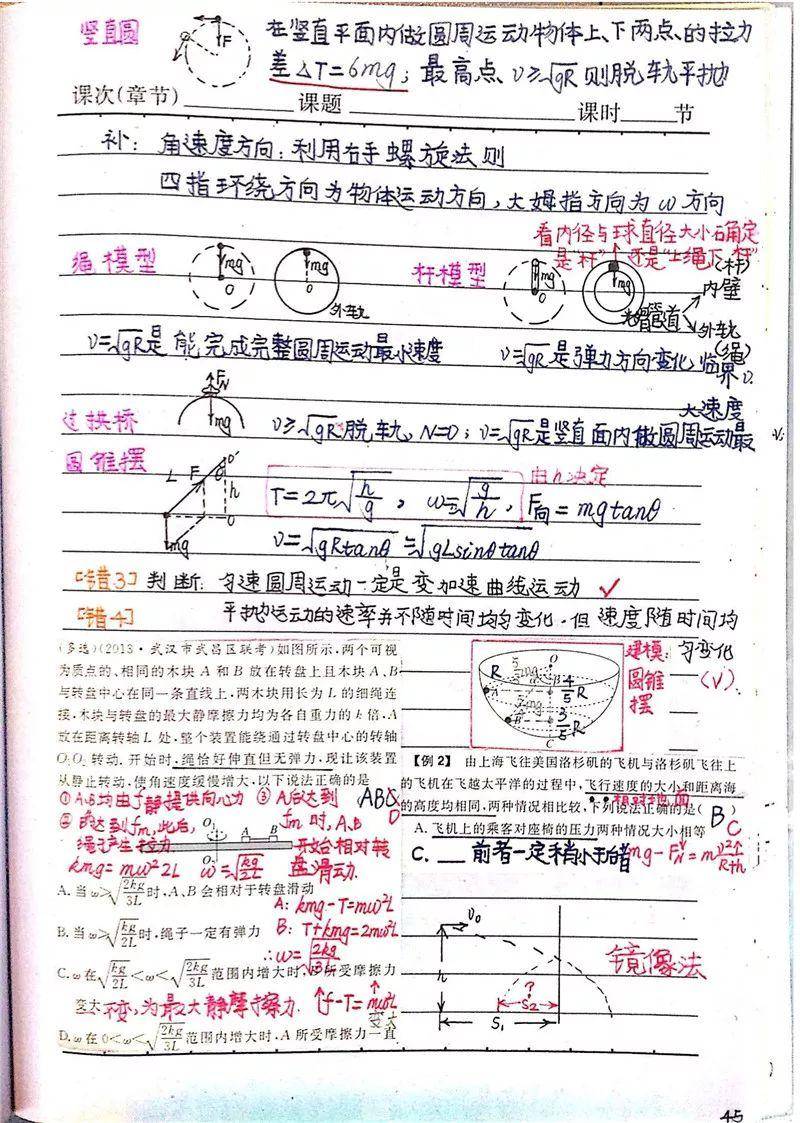 竖直圆
在竖直平面内做圆周运动物体上、下两点、的拉力
差△T=6mg；最高点、v≥√gR 则脱轨平抛
课次(章节) 课题 课时 节
补：角速度方向：利用右手螺旋法则
四指环绕方向为物体运动方向，大姆指方向为ω方向
看内径与球直径大小确定
是“杆”还是“上绳下杆”
绳模型 mg O mg O 外轨
杆模型 mg O mg 光滑管道 (杆) 内壁 外轨 (绳)
v=√gR是能完成完整圆周运动最小速度
v=√gR是弹力方向变化，临界v.
过拱桥 FN mg
v≥√gR脱轨，N=0；v=√gR是竖直面内做圆周运动最
大速度
圆锥摆 L F θ O' h O mg
由h决定
T=2π√h/g，ω=√g/h，F向=mgtanθ
v=√gRtanθ=√gLsinθtanθ
[错3] 判断：匀速圆周运动一定是变加速曲线运动 ✓
[错4] 平抛运动的速率并不随时间均匀变化，但速度随时间均
匀变化 (√).
(多选)(2013·武汉市武昌区联考)如图所示，两个可视
为质点的、相同的木块 A 和 B 放在转盘上且木块 A、B
与转盘中心在同一条直线上，两木块用长为 L 的细绳连
接，木块与转盘的最大静摩擦力均为各自重力的 k 倍，A
放在距离转轴 L 处，整个装置能绕通过转盘中心的转轴
O₁O₂ 转动．开始时，绳恰好伸直但无弹力，现让该装置
从静止转动，使角速度缓慢增大，以下说法正确的是
ABD
①A、B均由f静提供向心力
②B达到fm，此后，
绳子产生拉力
kmg=mω²2L ω=√kg/2L
③A后达到
fm时，A、B
开始相对转
盘滑动.
O₁ A B O₂
A. 当 ω>√2kg/3L 时，A、B 会相对于转盘滑动
A: kmg-T=mω²L
B. 当 ω>√kg/2L 时，绳子一定有弹力
B: T+kmg=2mω²L
∴ω=√2kg/3L
C. ω 在√kg/2L<ω<√2kg/3L 范围内增大时，B 所受摩擦力
变大 不变，为最大静摩擦力. ↑f-T=mω²L 变大
D. ω 在 0<ω<√2kg/3L 范围内增大时，A 所受摩擦力一直
R O A B C 4/5R 3/5R
建模：
圆锥
摆
【例 2】 由上海飞往美国洛杉矶的飞机与洛杉矶飞往上
的飞机在飞越太平洋的过程中，飞行速度的大小和距离海
相对地面
的高度均相同，两种情况相比较，下列说法正确的是( )
B C
A. 飞机上的乘客对座椅的压力两种情况大小相等
C. 前者一定稍小于后者 mg-FN=mv²/R+h
v₀ h S₁ S₂ ?
镜像法
45